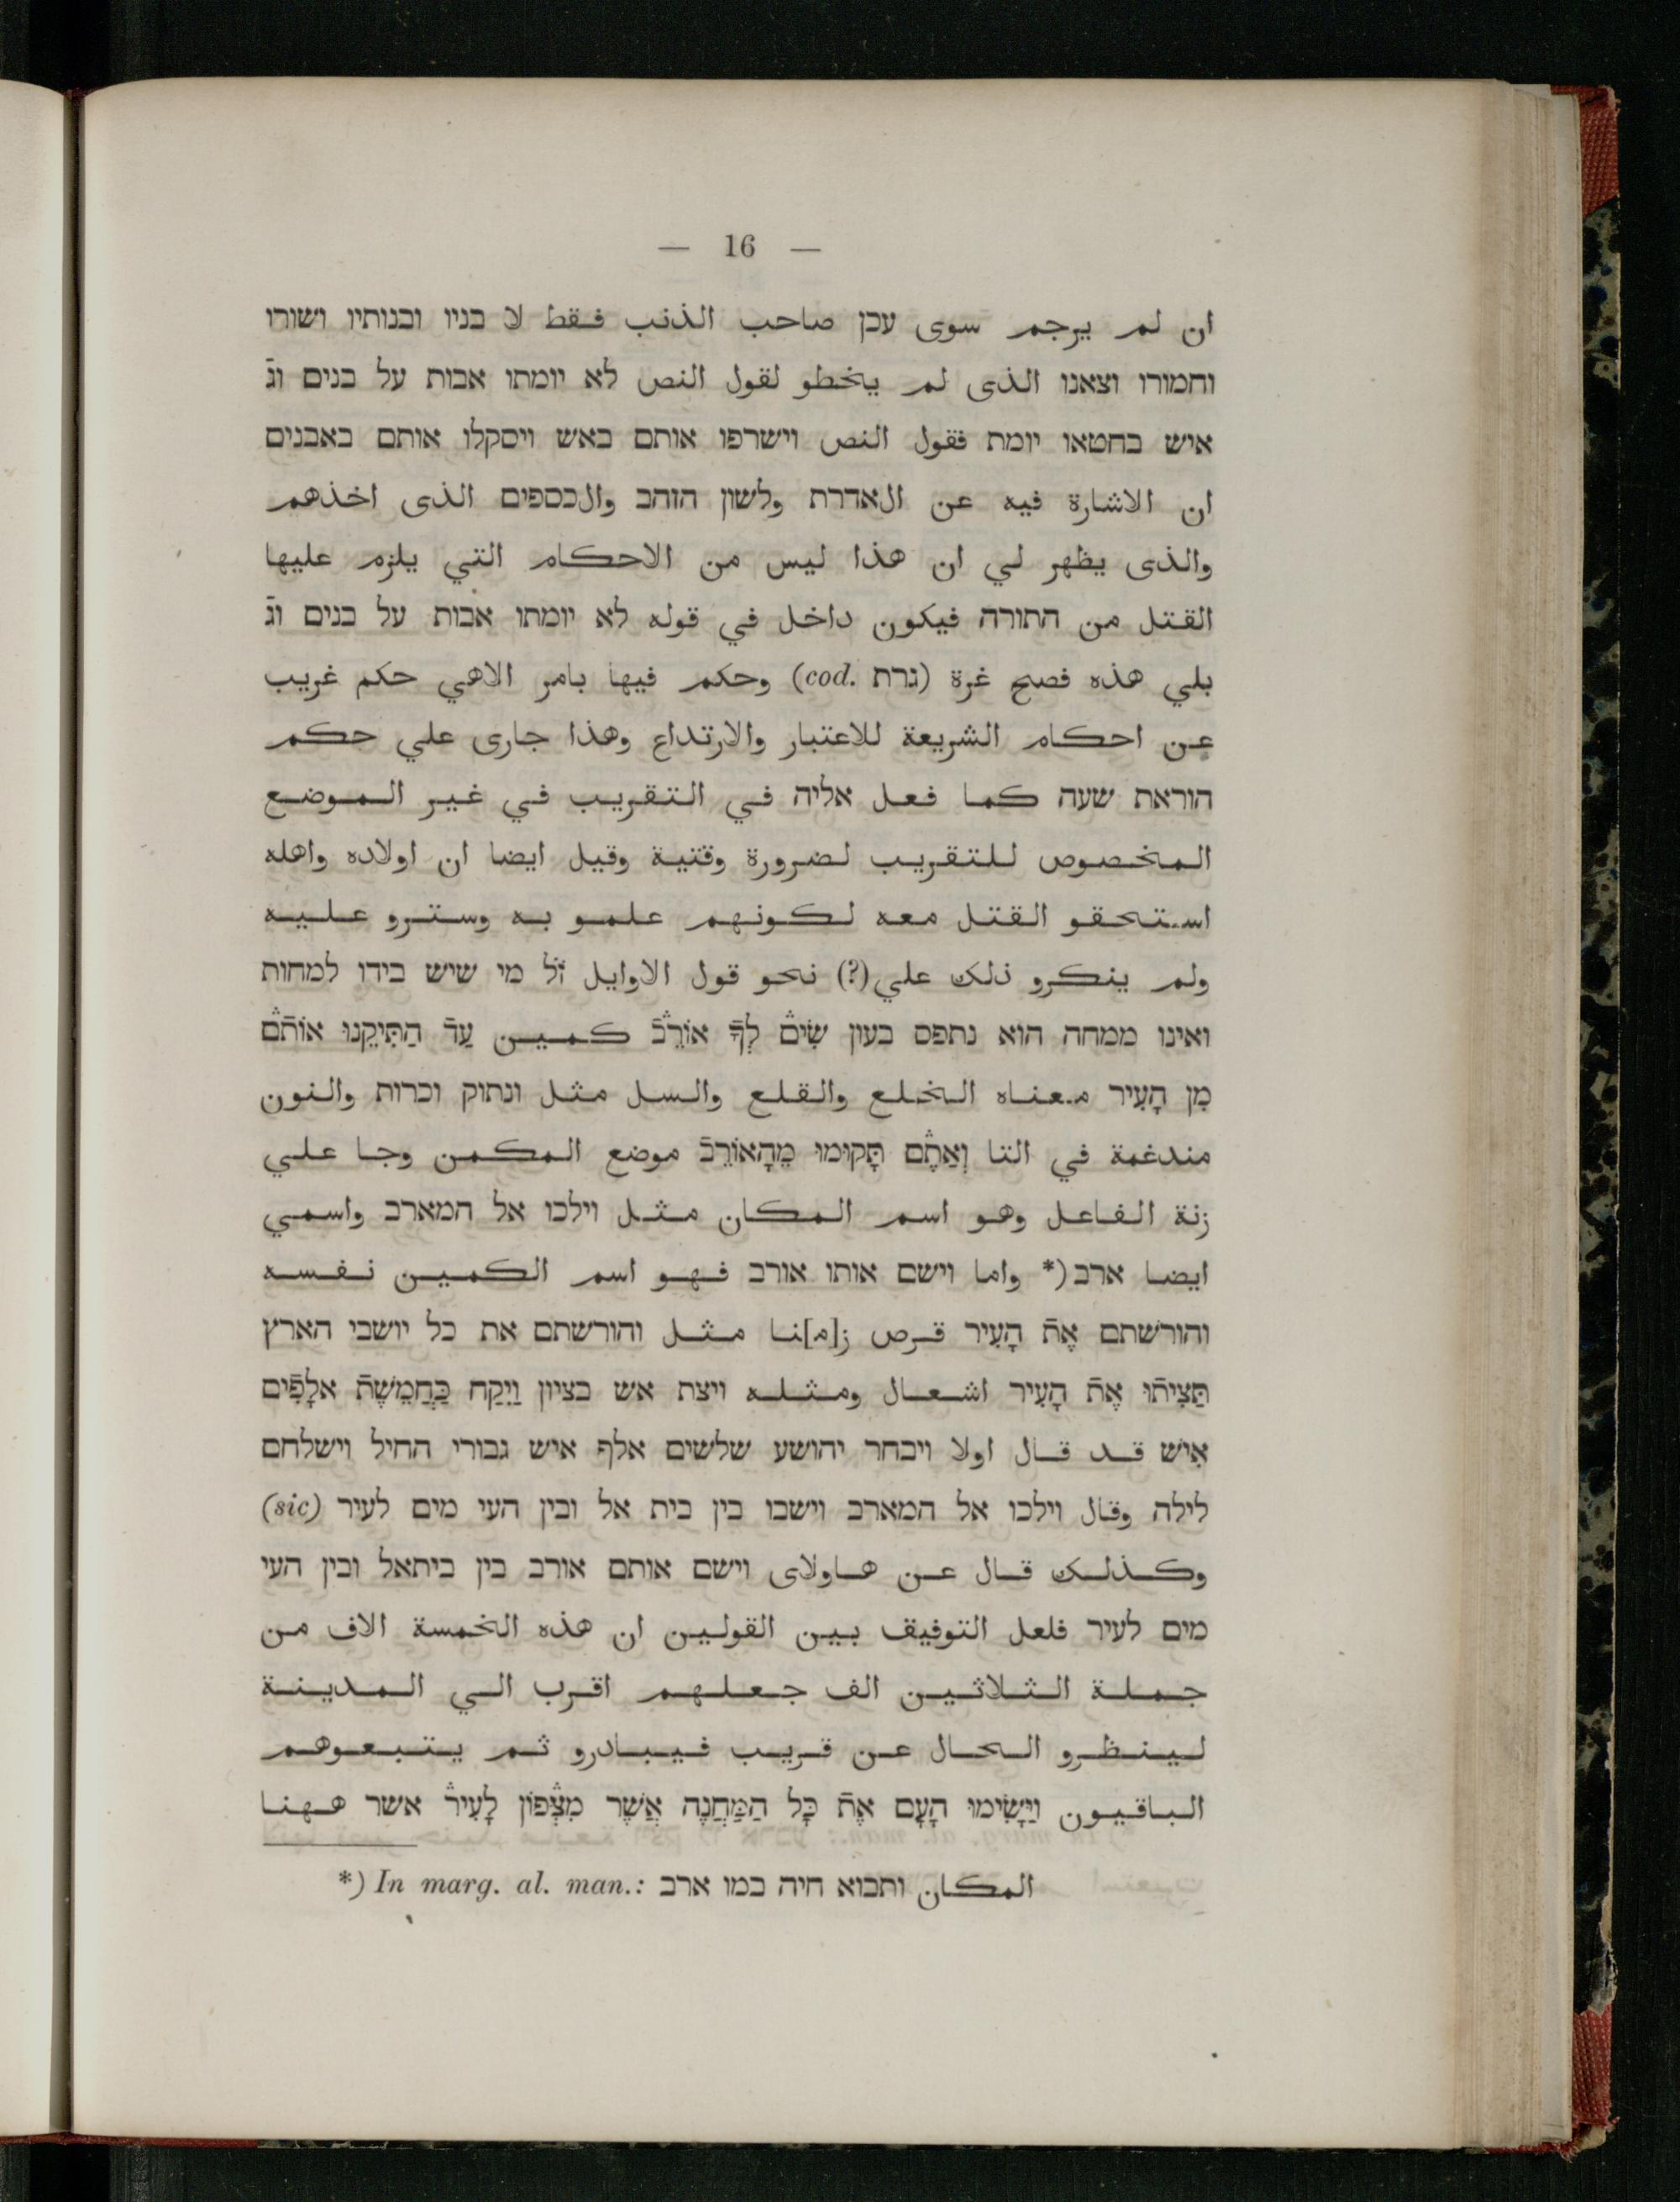 — 16 —
ان لم يرجم سوى עכן صاحب الذنب فقط لا בניו ובנותיו ושורו
וחמורו וצאנו الذى لم يخطو لقول النص לא יומתו אבות על בנים וגֿ
איש בחטאו יומת فقول النص וישרפו אותם באש ויסקלו אותם באבנים
ان الاشارة فيه عن الאדרת ولשון הזהב والכספים الذى اخذهم
والذى يظهر لي ان هذا ليس من الاحكام التي يلزم عليها
القتل من התורה فيكون داخل في قوله לא יומתו אבות על בנים וגֿ
بلي هذه فصح غرة (גרת cod.) وحكم فيها بامر الاهي حكم غريب
عن احكام الشريعة للاعتبار والارتداع وهذا جارى علي حكم
הוראת שעה كما فعل אליה في التقريب في غير الموضع
المخصوص للتقريب لضرورة وقتية وقيل ايضا ان اولاده واهله
استحقو القتل معه لكونهم علمو به وسترو عليه
ولم ينكرو ذلك علي(?) نحو قول الاوايل זֿל מי שיש בידו למחות
ואינו ממחה הוא נתפס בעון שִׂים לְךָ אוֹרֵב كمين עַד הַתִּיקֵנוּ אוֹתָם
מִן הָעִיר معناه الخلع والقلع والسل مثل ונתוק וכרות والنون
مندغمة في التا וְאַתֶּם תָּקוּמוּ מֵהָאוֹרֵב موضع المكمن وجا علي
زنة الفاعل وهو اسم المكان مثل וילכו אל המארב واسمي
ايضا ארב(* واما וישם אותו אורב فهو اسم الكمين نفسه
והורשתם אֶת הָעִיר قرص ز[م]نا مثل והורשתם את כל יושבי הארץ
תַּצִּיתוּ אֶת הָעִיר اشعال ومثله ויצת אש בציון וַיִּקַּח כַּחֲמֵשֶׁת אלָפִים
אִישׁ قد قال اولا ויבחר יהושע שלשים אלף איש גבורי החיל וישלחם
לילה وقال וילכו אל המארב וישבו בין בית אל ובין העי מים לעיר (sic)
وكذلك قال عن هاولاى וישם אותם אורב בין ביתאל ובין העי
מים לעיר فلعل التوفيق بين القولين ان هذه الخمسة الاف من
جملة الثلاثين الف جعلهم اقرب الي المدينة
لينظرو الحال عن قريب فيبادرو ثم يتبعوهم
الباقيون וַיָּשִׂימוּ הָעָם אֶת כָּל הַמַּחֲנֶה אֲשֶׁר מִצְּפוֹן לָעִיר אשר ههنا
*) In marg. al. man.: المكان ותבוא חיה במו ארב